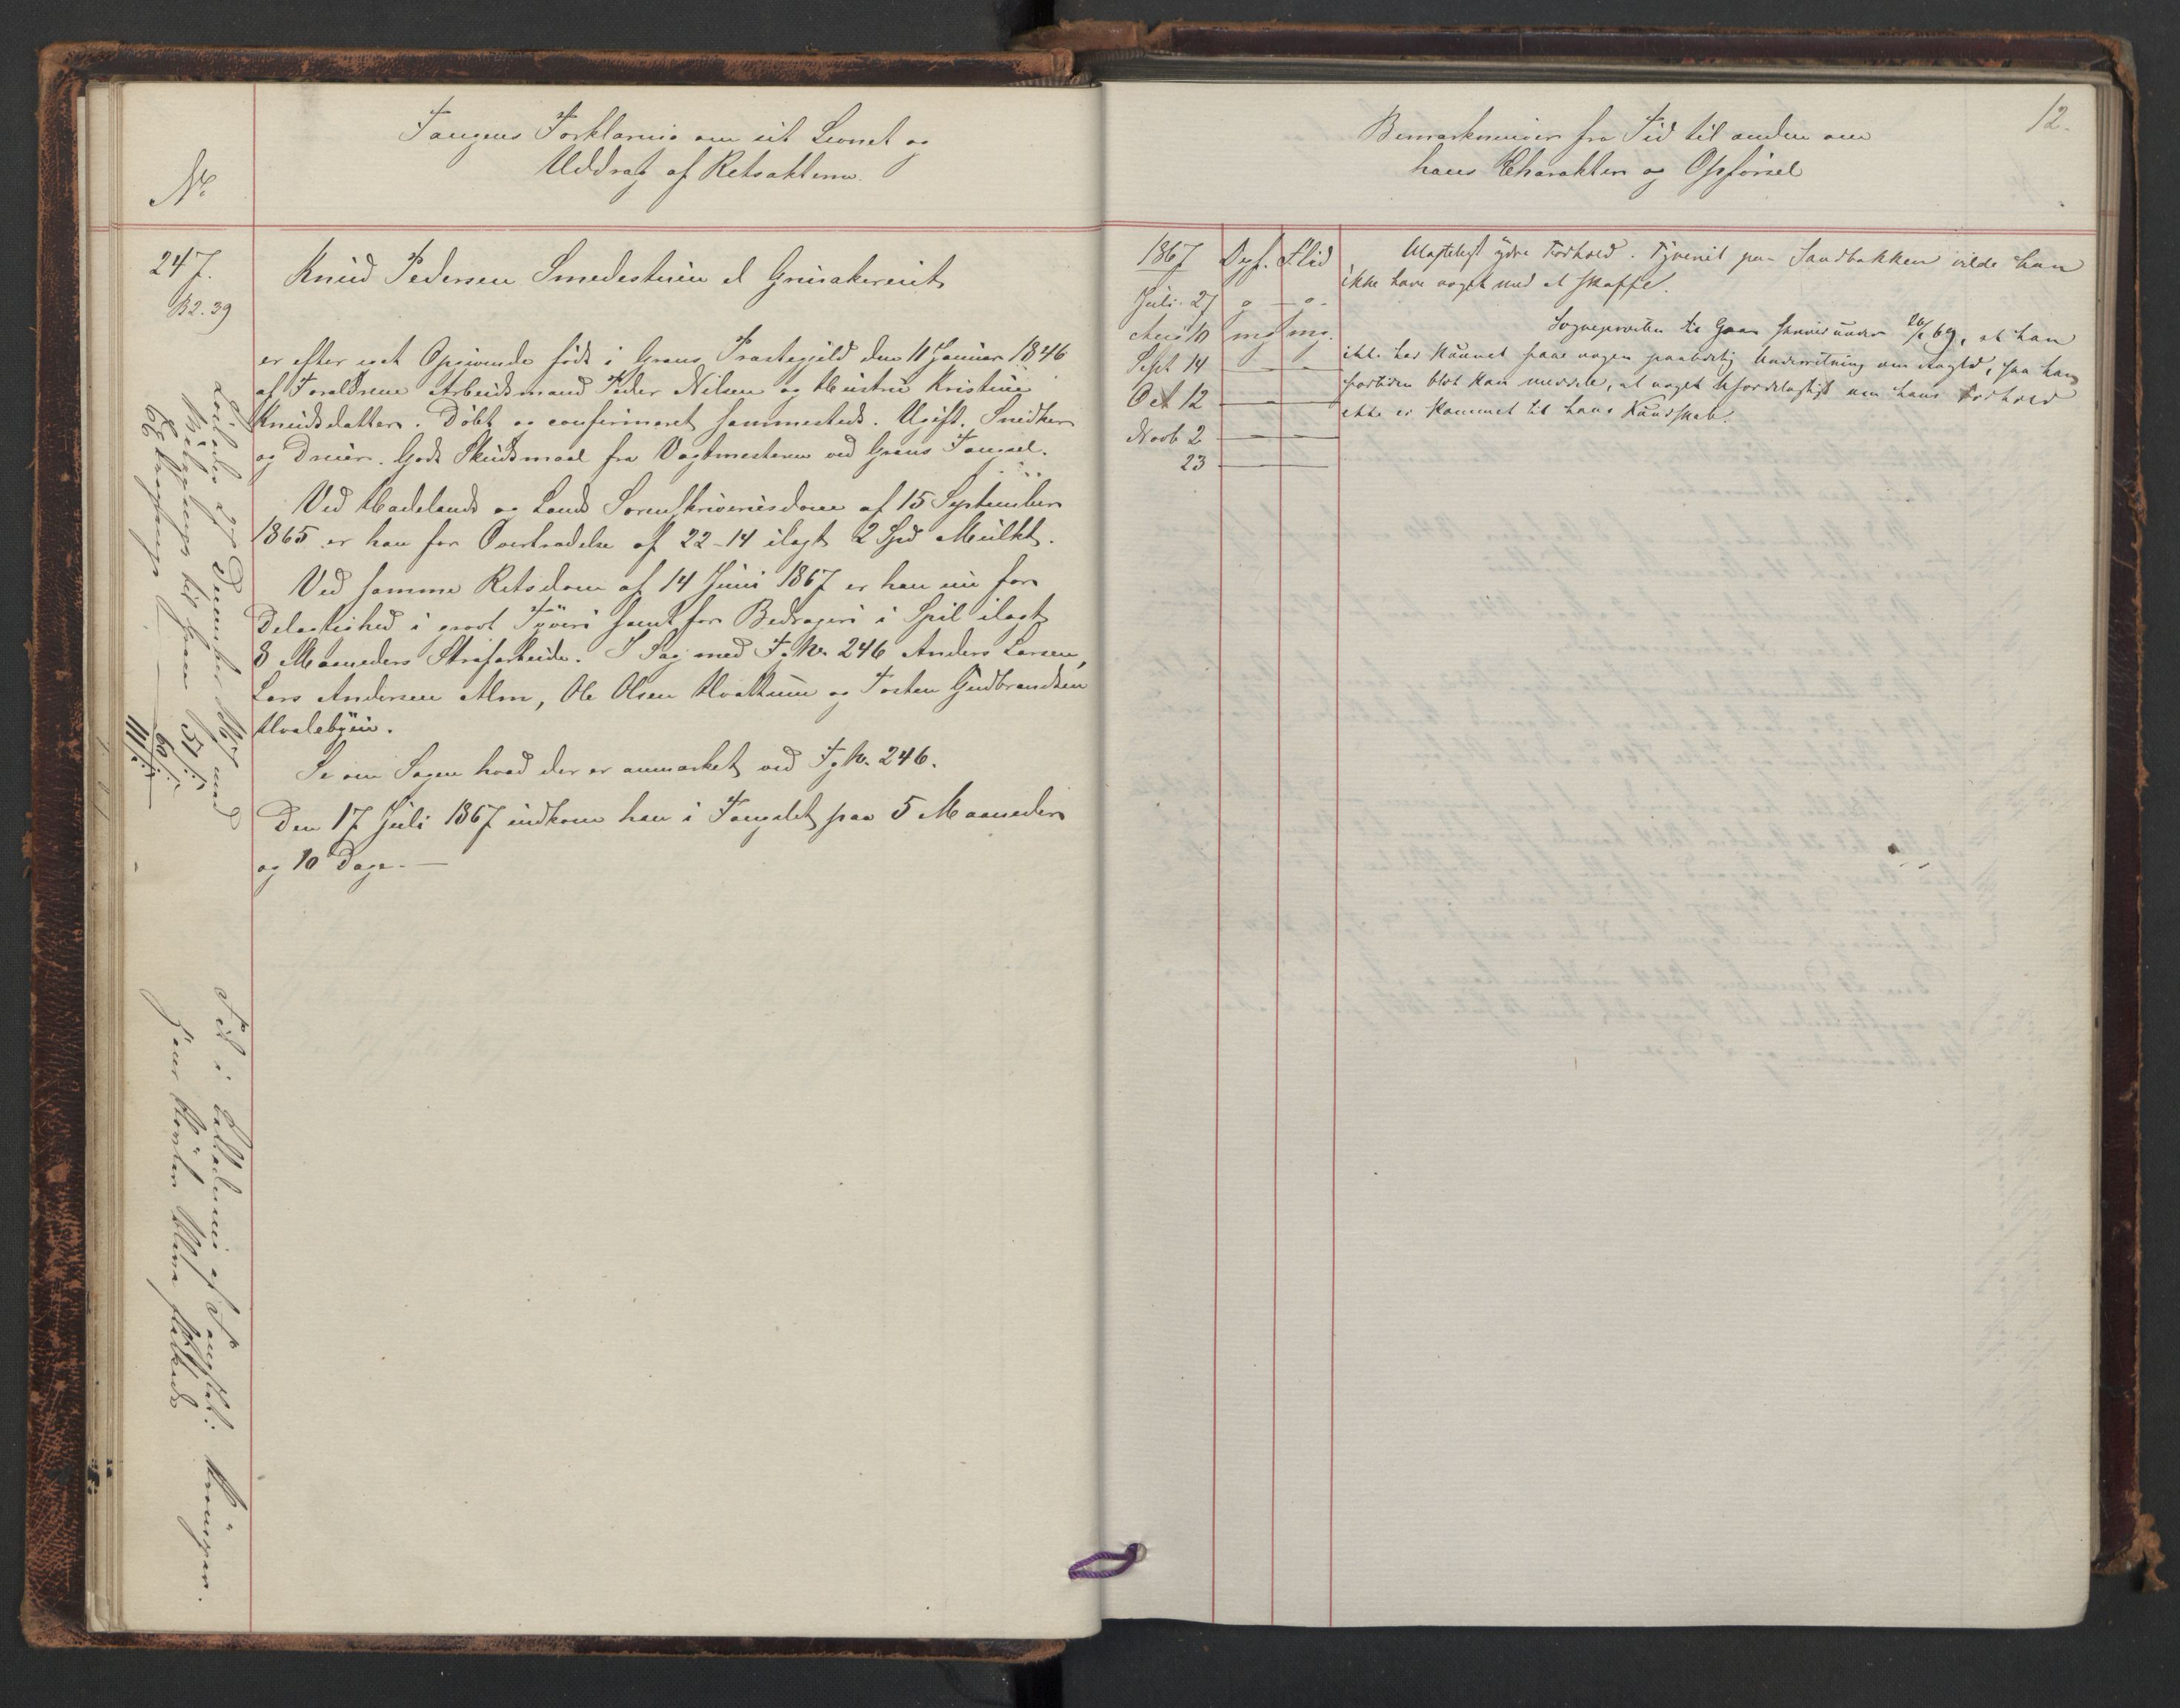 Fangens Forklaring om sit Levnet og
Uddrag af Retsakterne.
No
247.
B2.39
Knud Pedersen Smedestuen el Grinakereiet
er efter eget Opgivende født i Grans Præstegjeld den 11 Januar 1846
af Forældrene Arbeidsmand Peder Nilsen og Hustru Kristine
Knudsdatter. Døbt og confirmeret sammesteds. Ugift. Snedker
og Dreier. Godt Skudsmaal fra Vagtmesteren ved Grans Fængsel.
Ved Hadelands og Lands Sorenskriveriesdom af 15 September
1865 er han for Overtrædelse af 22-14 ilagt 2 Spd Mulkt.
Ved samme Retsdom af 14 Juni 1867 er han nu for
Delagtighed i grovt Tyveri samt for Bedrageri i Spil ilagt
8 Maaneders Strafarbeide. I Sag med F. No. 246 Anders Larsen,
Lars Andersen Alm, Ole Olsen Hvattum og Torsten Gudbrandsen
Hvalebyeie.
Se om Sagen hvad der er anmærket ved Fg No. 246.
Den 17 Juli 1867 indkom han i Fængslet paa 5 Maaneder
og 10 Dage.
Løsladt 27 December 1867 med
til Gran
Fik i af Fangstol:
12.
Bemærkninger fra Tid til anden om
hans Charakter og Opførsel
1867 Opf. Flid
Juli 27 g g
Aug 10 mg mg.
Sept 14 — —
Oct 12 — —
Novb 2 — —
23 — —
ydre Forhold. Tyveriet paa Sandbakken vilde han
ikke have noget med at skaffe.
Sognepresten til Gran skriver under 26/2 69, at han
ikke har kunnet faae nogen paalidelig Underretning om , saa han
fortiden blot kan meddele, at noget ufordelagtigt om hans Forhold
ikke er kommet til hans Kundskab.